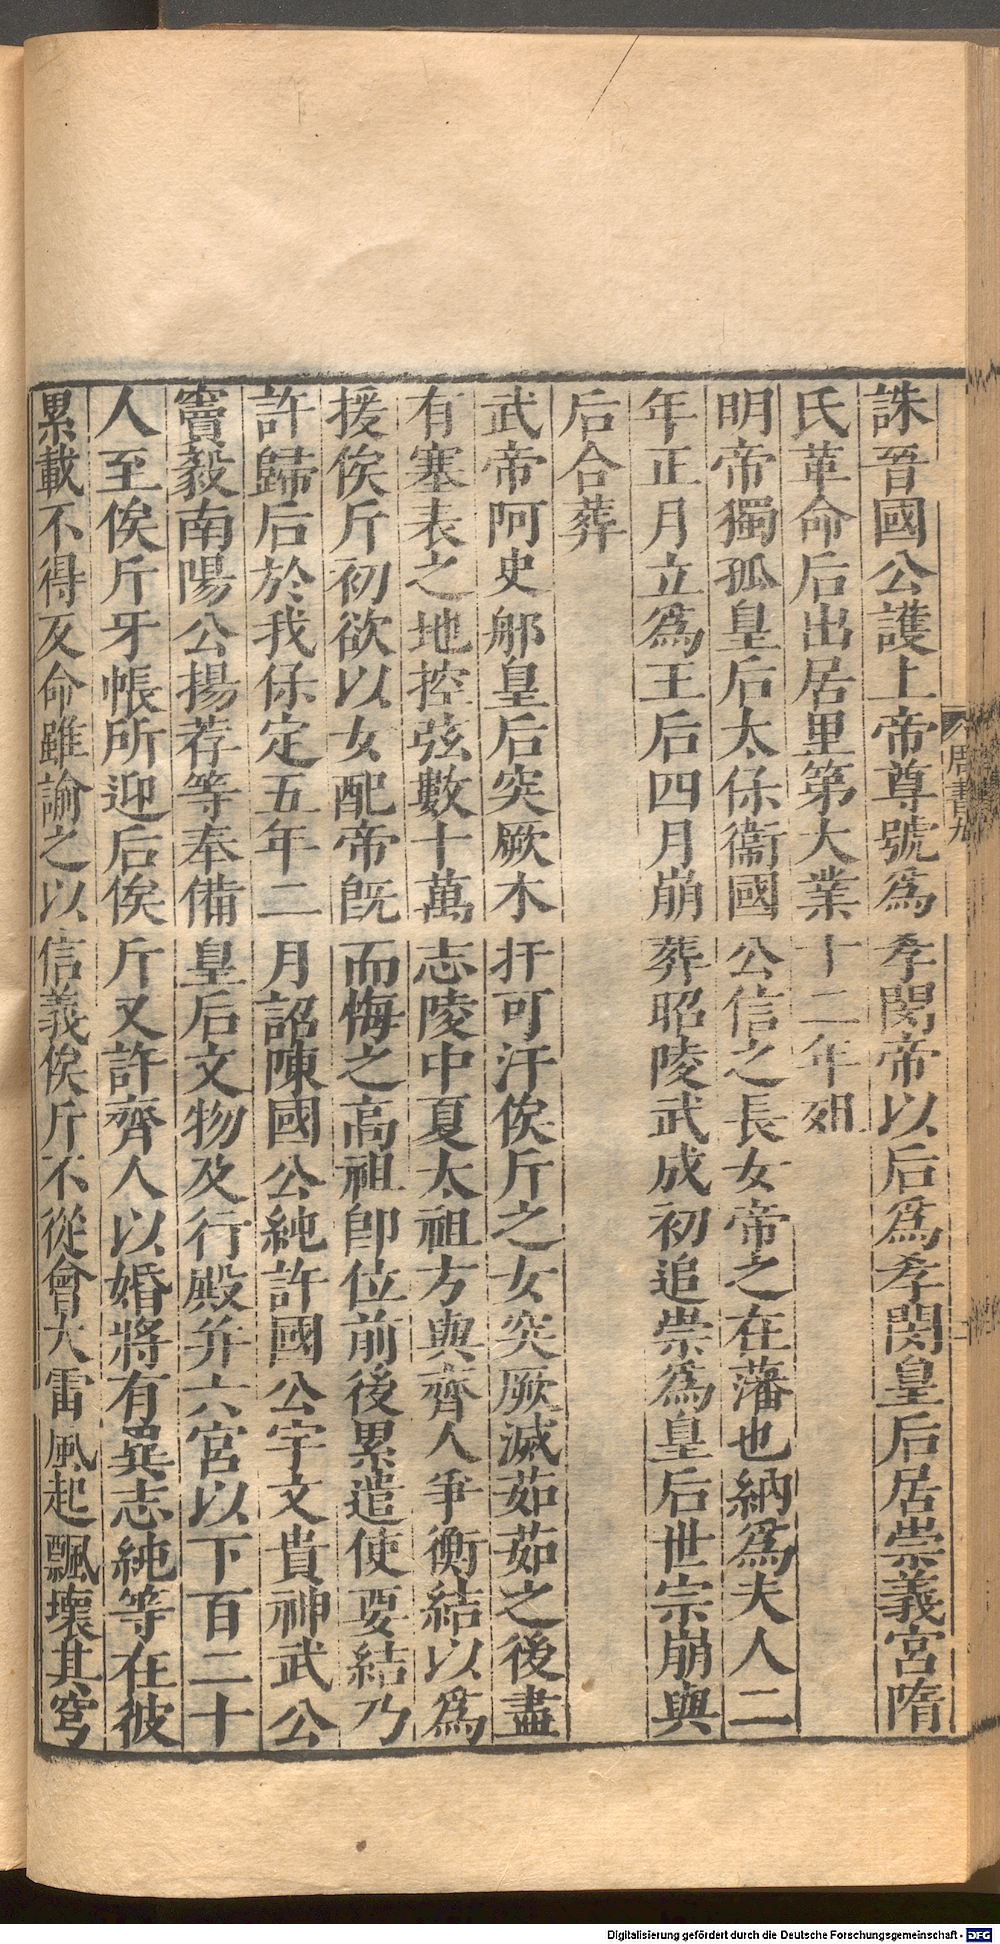 周書九
誅晉國公護上帝尊號爲孝閔帝以后爲孝閔皇后居崇義宮隋
氏革命后出居里第大業十二年殂
明帝獨孤皇后太保衞國公信之長女帝之在藩也納爲夫人二
年正月立爲王后四月崩葬昭陵武成初追崇爲皇后世宗崩與
后合葬
武帝阿史那皇后突厥木扞可汗俟斤之女突厥滅茹茹之後盡
有塞表之地控弦數十萬志陵中夏太祖方與齊人爭衡結以爲
援俟斤初欲以女配帝旣而悔之高祖卽位前後累遣使要結乃
許歸后於我保定五年二月詔陳國公純許國公宇文貴神武公
竇毅南陽公揚荐等奉備皇后文物及行殿幷六宮以下百二十
人至俟斤牙帳所迎后俟斤又許齊人以婚將有異志純等在彼
累載不得反命雖諭之以信義俟斤不從會大雷風起飄壞其穹
Digitalisierung gefördert durch die Deutsche Forschungsgemeinschaft - DFG